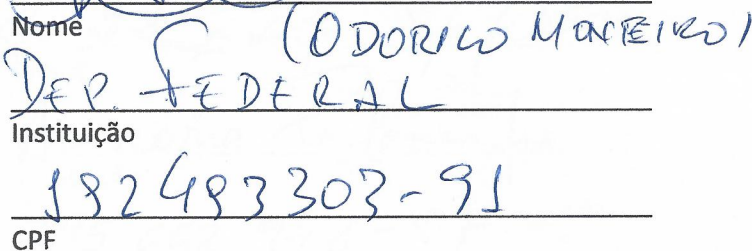 Nome
(ODORICO MONTEIRO)
DEP. FEDERAL
Instituição
192493303-91
CPF